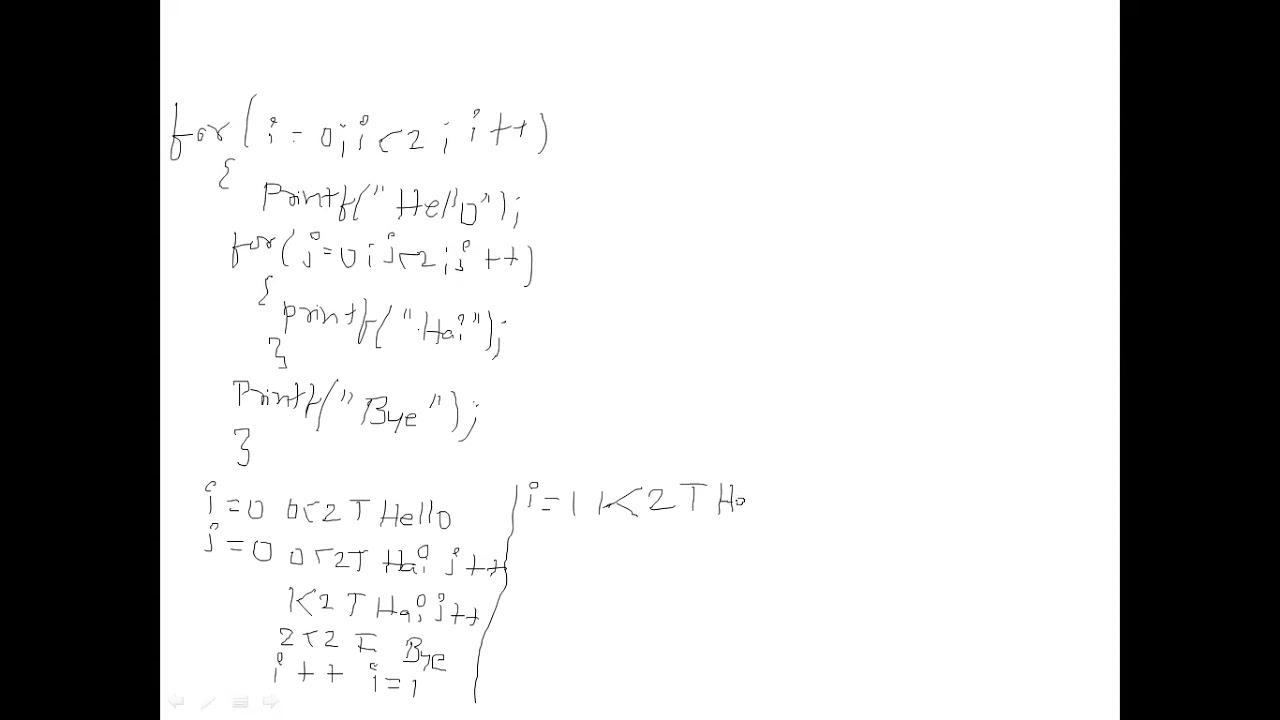 for(i=0;i<2;i++)
{
printf("Hello");
for(j=0;j<2;j++)
{
printf("Hai");
}
Printf("Bye");
}
i=0 0<2 T Hello
j=0 0<2 T Hai j++
1<2 T Hai j++
2<2 F Bye
i++ i=1
i=1 1<2 T Ho